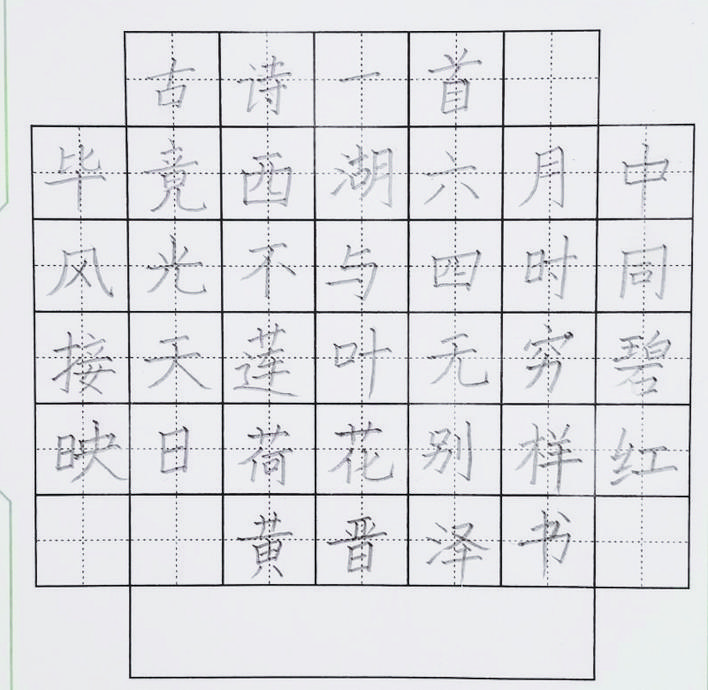 古诗一首
毕竟西湖六月中
风光不与四时同
接天莲叶无穷碧
映日荷花别样红
黄晋泽书